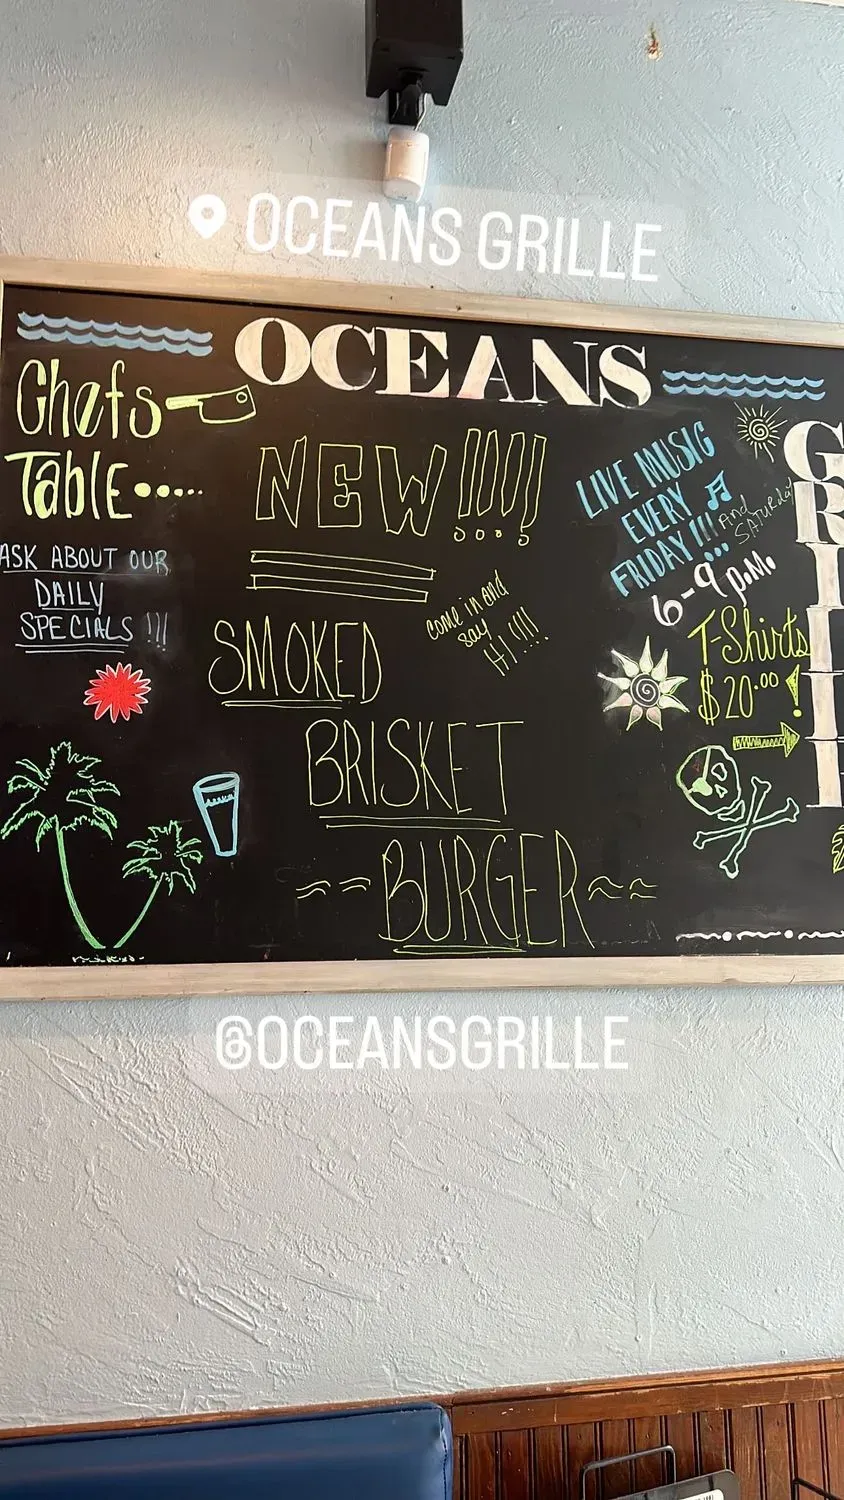 OCEANS GRILLE
OCEANS
GRILL
Chefs
Table.....
ASK ABOUT OUR
DAILY
SPECIALS !!!
NEW!!!!
come in and
say
Hi!!!!
SMOKED
BRISKET
BURGER
LIVE MUSIC
EVERY
FRIDAY!!!
And
SATURday
6-9 p.m.
T-Shirts
$20.00!
@OCEANSGRILLE